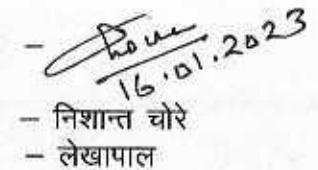 –
16.01.2023
– निशान्त चोरे
– लेखापाल